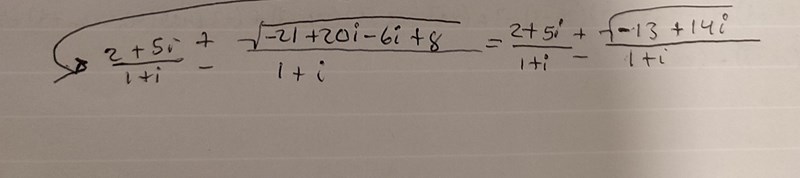 (2+5i)/(1+i) ± √(-21+20i-6i+8)/(1+i) = (2+5i)/(1+i) ± √(-13+14i)/(1+i)